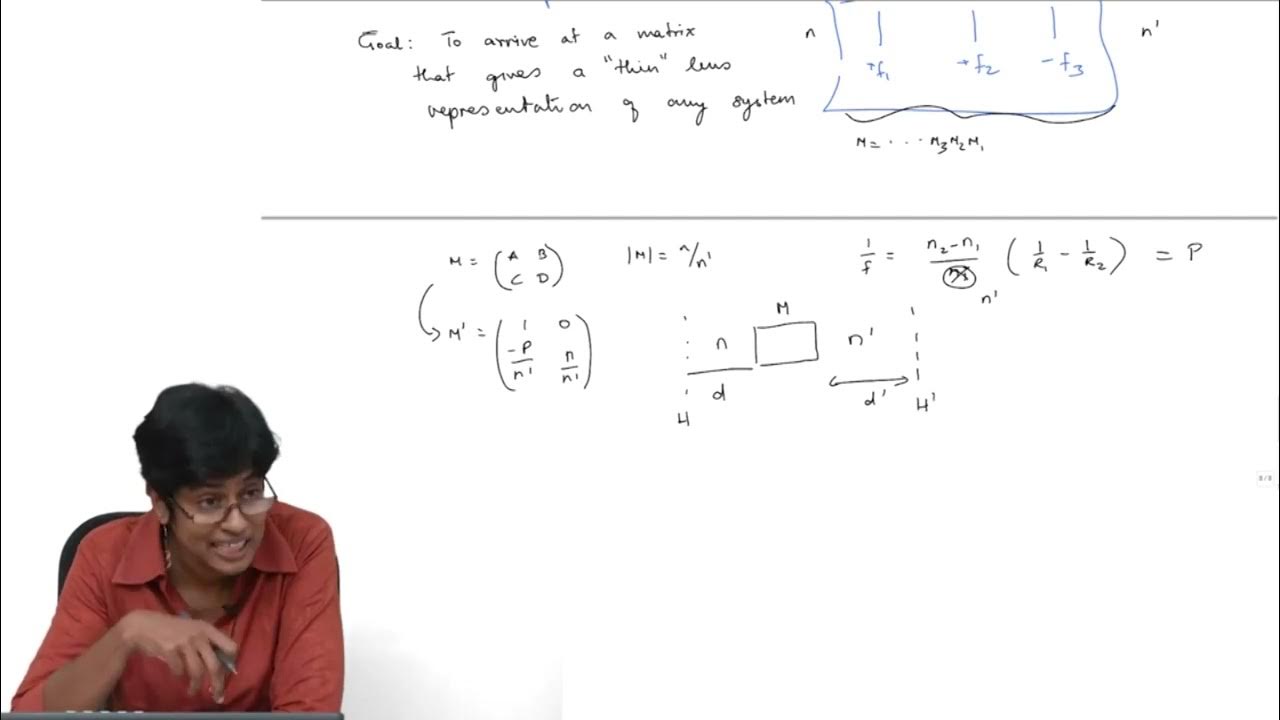 Goal: To arrive at a matrix
that gives a "thin" lens
representation of any system
n
n'
+f₁ +f₂ -f₃
M = ... M₃M₂M₁
M = (A B
C D)
|M| = n/n'
1/f = (n₂-n₁)/n' (1/R₁ - 1/R₂) = P
M' = (1 0
-P/n' n/n')
M
n
n'
d
d'
H
H'
8/8